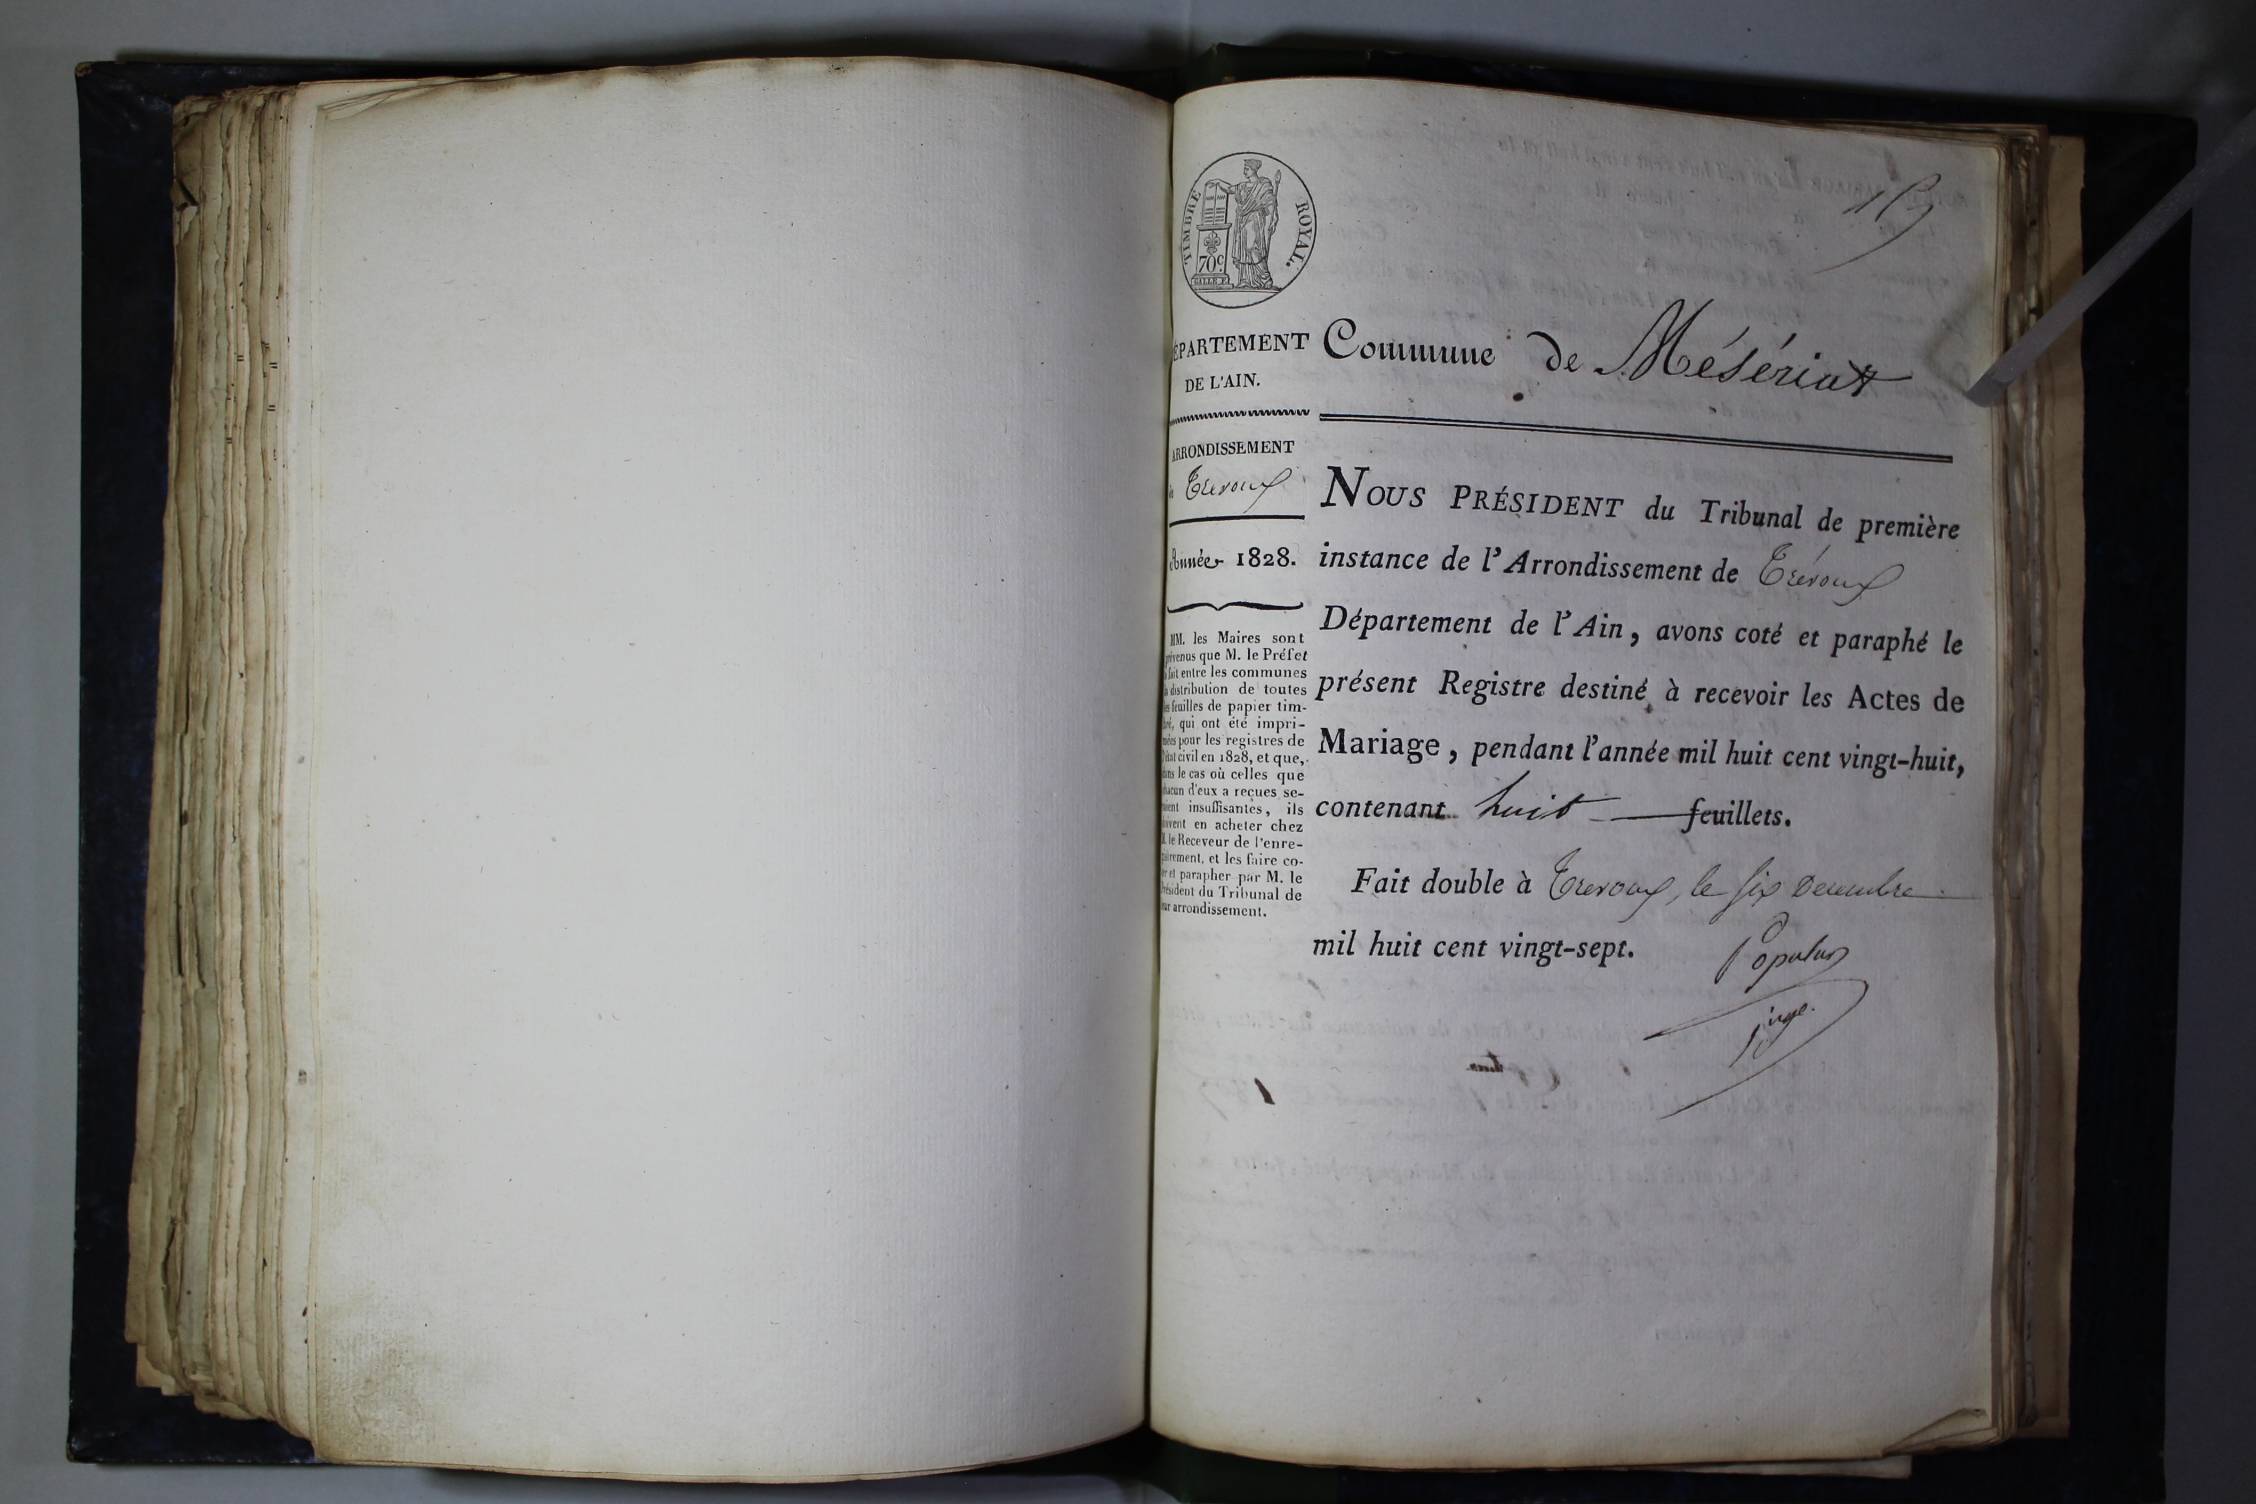 TIMBRE ROYAL.
70c
DÉPARTEMENT
DE L'AIN.
Commune de Mésériat
ARRONDISSEMENT
de Trévoux
Année 1828.
MM. les Maires sont
prévenus que M. le Préfet
a fait entre les communes
la distribution de toutes
les feuilles de papier tim-
bré, qui ont été impri-
mées pour les registres de
l'état civil en 1828, et que,
dans le cas où celles que
chacun d'eux a reçues se-
raient insuffisantes, ils
doivent en acheter chez
M. le Receveur de l'enre-
gistrement, et les faire co-
ter et parapher par M. le
Président du Tribunal de
leur arrondissement.
NOUS PRÉSIDENT du Tribunal de première
instance de l'Arrondissement de Trévoux
Département de l'Ain, avons coté et paraphé le
présent Registre destiné à recevoir les Actes de
Mariage, pendant l'année mil huit cent vingt-huit,
contenant huit feuillets.
Fait double à Trevoux, le six Decembre
mil huit cent vingt-sept.
Populus
juge.